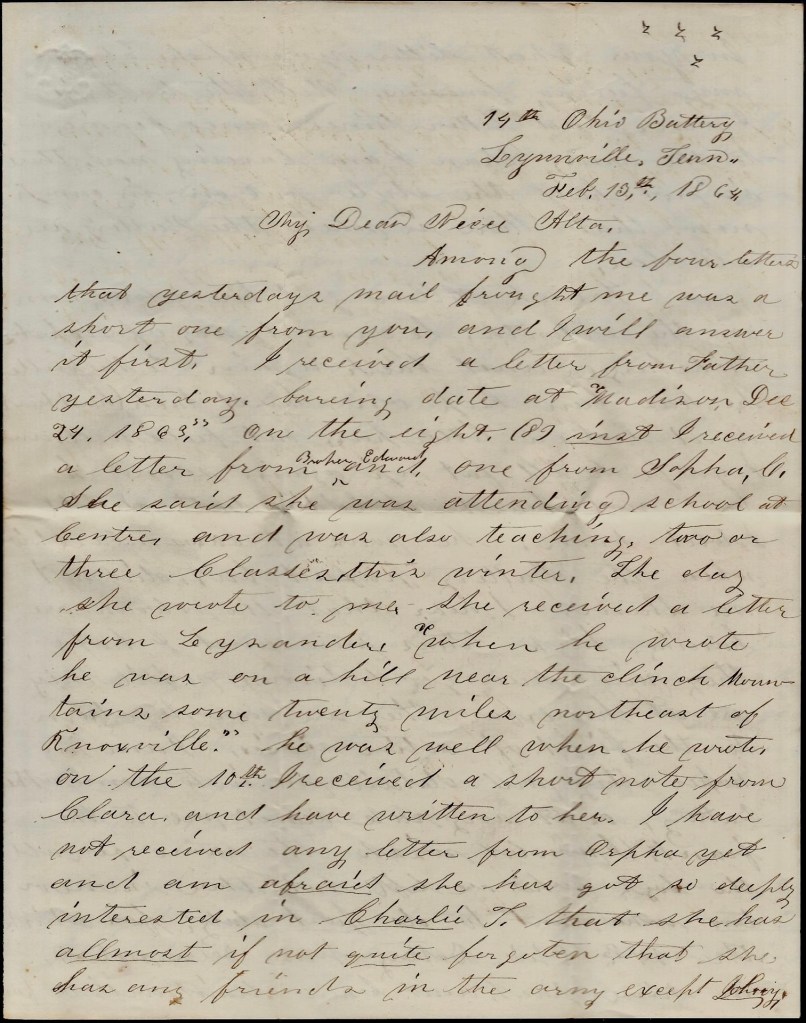 14th Ohio Battery
Lynnville, Tenn.
Feb. 13,th, 1864
My Dear Niece Alta.
Among the four letters
that yesterdays mail brought me was a
short one from you, and I will answer
it first. I received a letter from Father
yesterday. bareing date at "Madison Dec
24. 1863," On the eight. (8) inst I received
a letter from Brother Edward and, one from Sopha, C,
She said she was attending school at
Centre, and was also teaching, two or
three Classes, this winter. The day
she wrote to me she received a letter
from Lysander, "when he wrote
he was on a hill near the clinch Moun-
tains some twenty miles northeast of
Knoxville." he was well when he wrote,
on the 10th. I received a short note from
Clara, and have written to her. I have
not received any letter from Orpha yet
and am afraid she has got so deeply
interested in Charlie T. that she has
allmost if not quite forgoten that she
has any friends in the army except